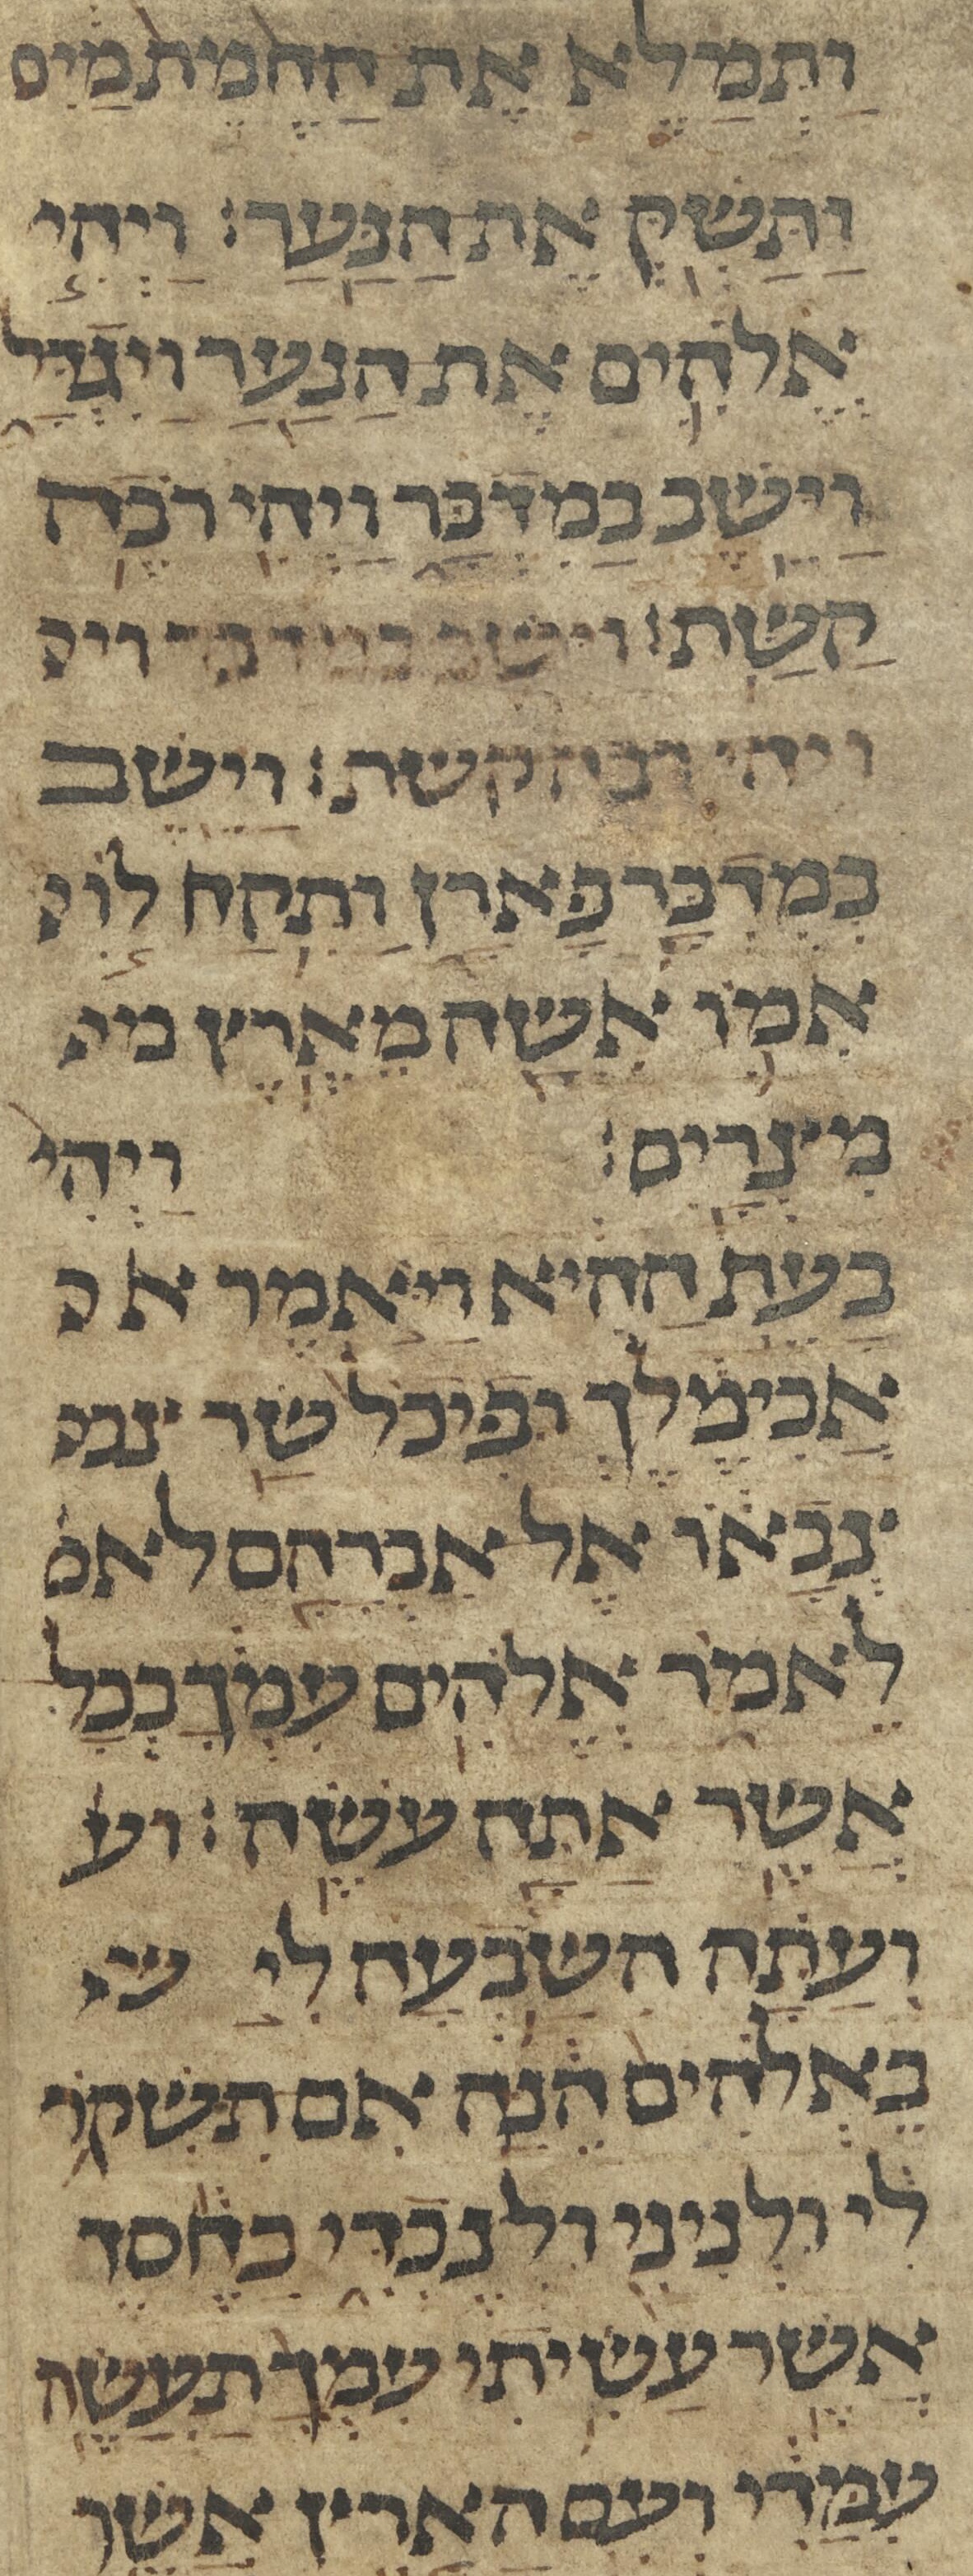 וַתְּמַלֵּא אֶת הַחֵמֶת מַיִם
וַתַּשְׁקְ אֶת הַנָּעַר׃ וַיְהִי
אֱלֹהִים אֶת הַנַּעַר וַיִּגְדָּל
וַיֵּשֶׁב בַּמִּדְבָּר וַיְהִי רֹבֶה
קַשָּׁת׃ וישב במדבר ויה
ויהי רבה קשת׃ וַיֵּשֶׁב
בְּמִדְבַּר פָּארָן וַתִּקַּח לוֹ
אִמּוֹ אִשָּׁה מֵאֶרֶץ מצ
מִצְרָיִם׃ וַיְהִי
בָּעֵת הַהִיא וַיֹּאמֶר אב
אֲבִימֶלֶךְ וּפִיכֹל שַׂר צבא
צְבָאוֹ אֶל אַבְרָהָם לאמ
לֵאמֹר אֱלֹהִים עִמְּךָ בְּכֹל
אֲשֶׁר אַתָּה עֹשֶׂה׃ וע
וְעַתָּה הִשָּׁבְעָה לִּי
בֵאלֹהִים הֵנָּה אִם תִּשְׁקֹר
לִי וּלְנִינִי וּלְנֶכְדִּי כַּחֶסֶד
אֲשֶׁר עָשִׂיתִי עִמְּךָ תַּעֲשֶׂה
עִמָּדִי וְעִם הָאָרֶץ אֲשֶׁר